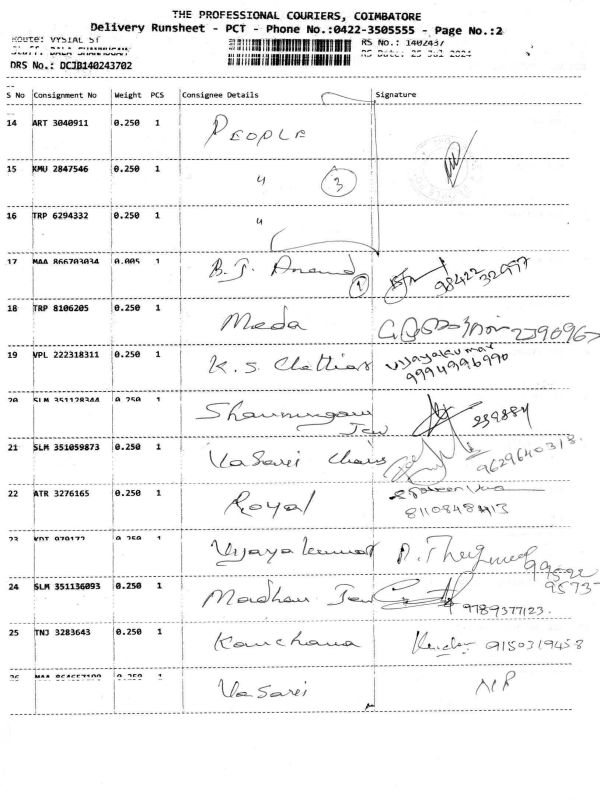 THE PROFESSIONAL COURIERS, COIMBATORE
Delivery Runsheet - PCT - Phone No.:0422-3505555 - Page No.:2
Route: VYSIAL ST
RS No.: 1402437
DRS No.: DCJB140243702
S No Consignment No Weight PCS Consignee Details Signature
14 ART 3040911 0.250 1 PEOPLE
15 KMU 2847546 0.250 1 " 3
16 TRP 6294332 0.250 1 "
17 MAA 866703034 0.005 1 B.J. Anand 1 98422 32977
18 TRP 8106205 0.250 1 Meda 2390967
19 VPL 222318311 0.250 1 K.S. Chettiar Vijayakumar
9994996990
20 SLM 351128344 0.250 1 Shanmugam
Jew 239884
21 SLM 351059873 0.250 1 Vasavi Chains 9629640318.
22 ATR 3276165 0.250 1 Royal
23 KDT 979172 0.250 1 Vijayakumar
24 SLM 351136093 0.250 1 Madhav Jew 9789377123.
25 TNJ 3283643 0.250 1 Kanchana 9150319458
26 0.250 1 Vasavi NR